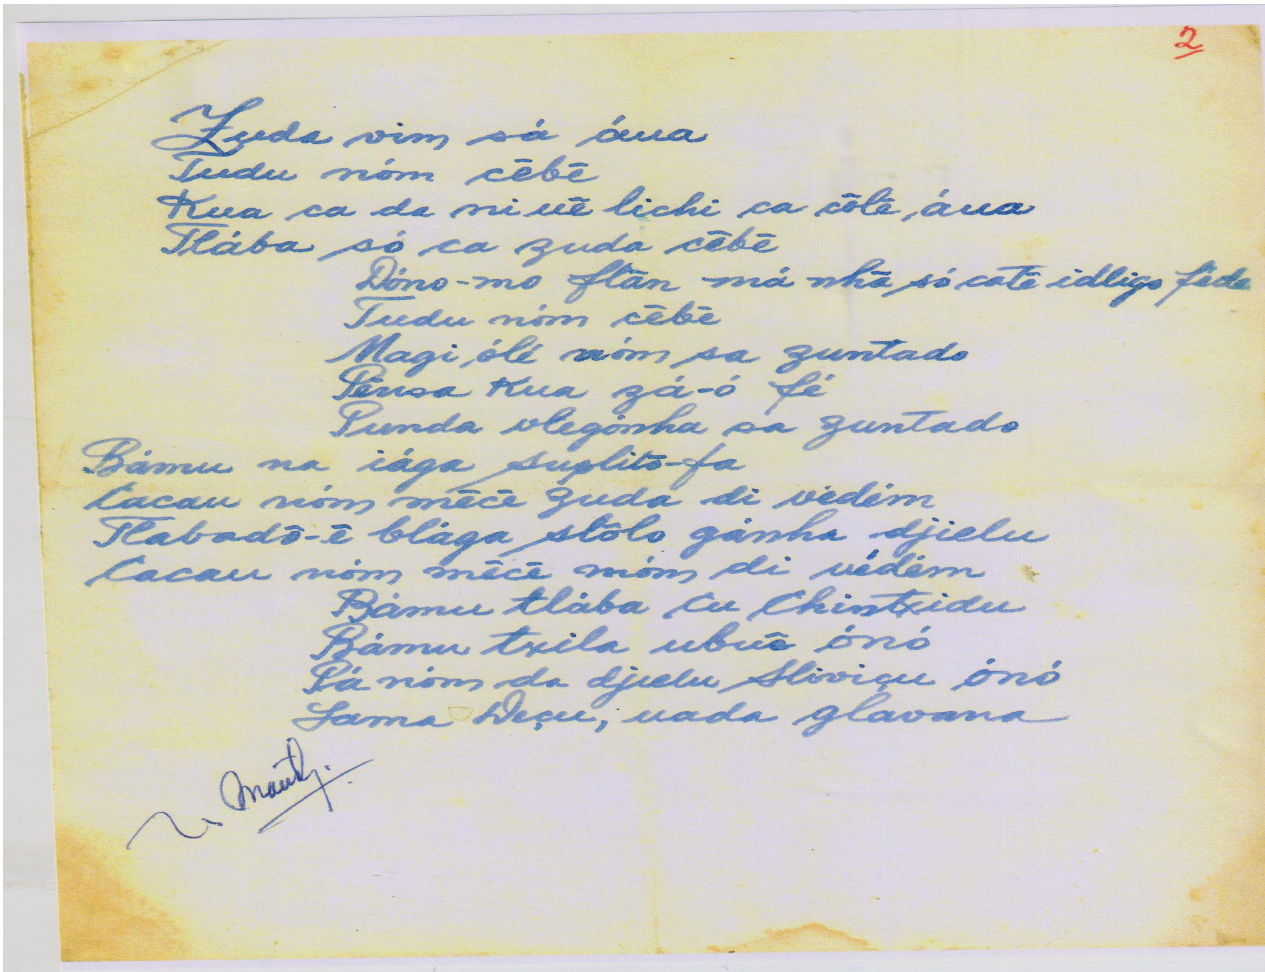 2
Zuda vim sá áua
Tudu nóm cēbē
Kua ca da ni uē lichi ca cōlē áua
Tlába só ca zuda cēbē
Dóno-mo flān má nhā só catē idligo féde
Tudu nóm cēbē
Magi ólé nóm sa zuntado
Pēnsa kua zá-ó fé
Punda vlegónha sa zuntado
Bámu na iága suplitō-fa
Cacau nóm mēcē zuda di védém
Tlabadō-ē blága stōlo gánha djielu
Cacau nóm mēcē móm di védém
Bámu tlába cu Chintxidu
Bámu txila ubuē ónó
Pá nóm da djielu Sliviçu ónó
Sama Deçu, uada glavana